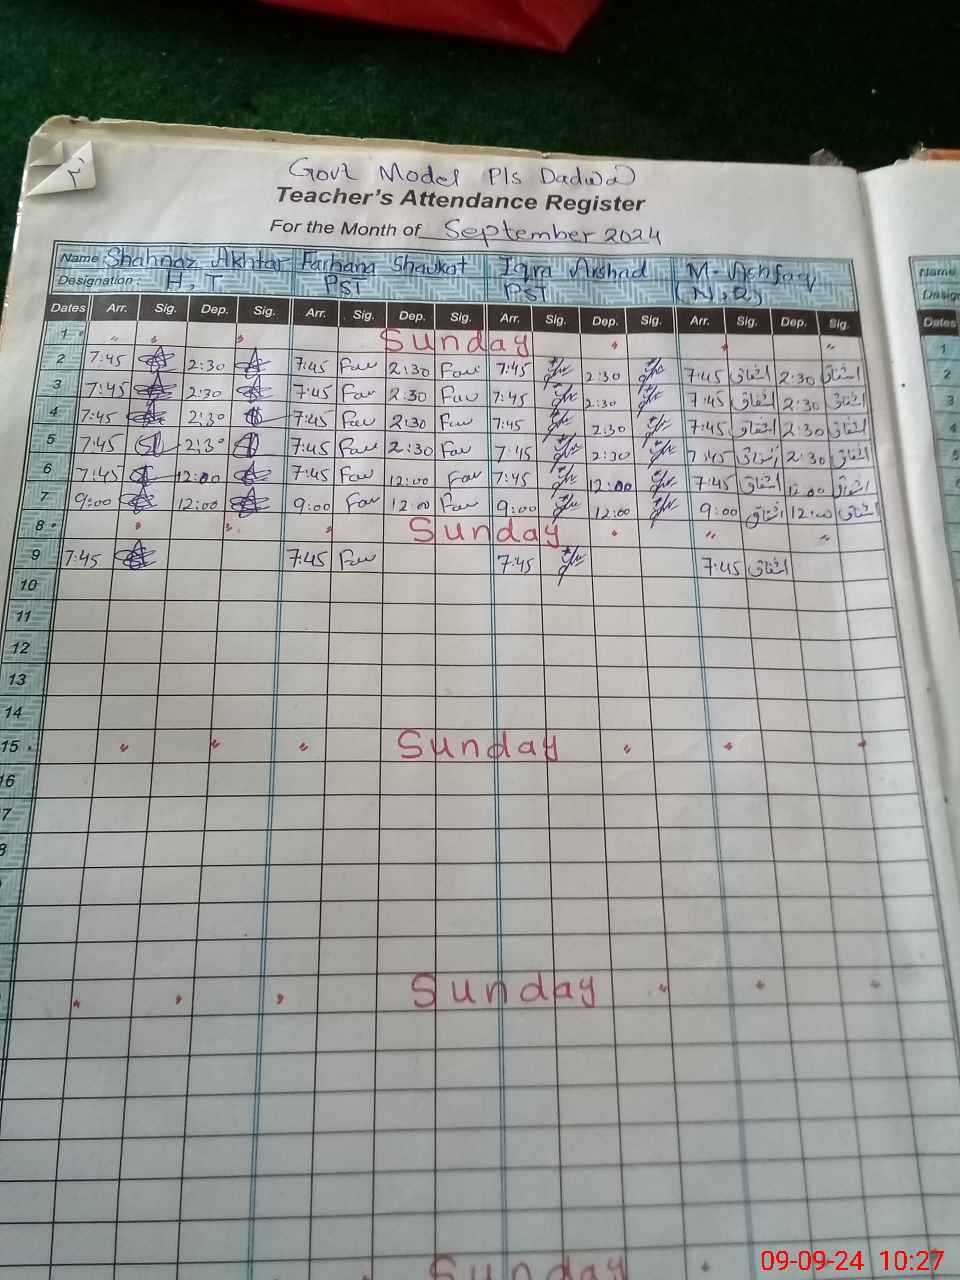 Govt Model P/s Dadwal
Teacher's Attendance Register
For the Month of September 2024
Name Shahnaz Akhtar Farhana Shaukat Iqra Arshad M. Ashfaq
Designation H.T PST PST (N,Q)
Dates Arr. Sig. Dep. Sig. Arr. Sig. Dep. Sig. Arr. Sig. Dep. Sig. Arr. Sig. Dep. Sig.
1 " " " Sunday " " "
2 7:45 2:30 7:45 Far 2:30 Far 7:45 2:30 7:45 اشفاق 2:30 اشفاق
3 7:45 2:30 7:45 Far 2:30 Far 7:45 2:30 7:45 اشفاق 2:30 اشفاق
4 7:45 2:30 7:45 Far 2:30 Far 7:45 2:30 7:45 اشفاق 2:30 اشفاق
5 7:45 2:30 7:45 Far 2:30 Far 7:45 2:30 7:45 اشفاق 2:30 اشفاق
6 7:45 12:00 7:45 Far 12:00 Far 7:45 12:00 7:45 اشفاق 12:00 اشفاق
7 9:00 12:00 9:00 Far 12:00 Far 9:00 12:00 9:00 اشفاق 12:00 اشفاق
8 " " " Sunday " " "
9 7:45 7:45 Far 7:45 7:45 اشفاق
10
11
12
13
14
15 " " " Sunday " " "
16
7
8
" " " Sunday " " "
Sunday "
Name
Design
Dates
1
2
3
4
5
6
09-09-24 10:27